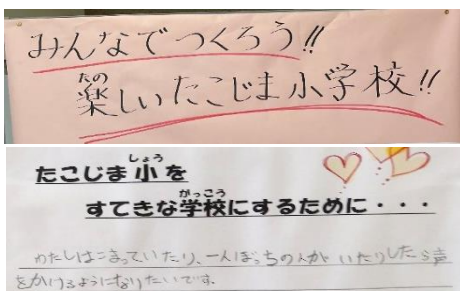 みんなでつくろう!!
楽しいたこじま小学校!!
たこじま小を
すてきな学校にするために・・・
わたしはこまっていたり、一人ぼっちの人がいたりしたら声
をかけるようになりたいです。